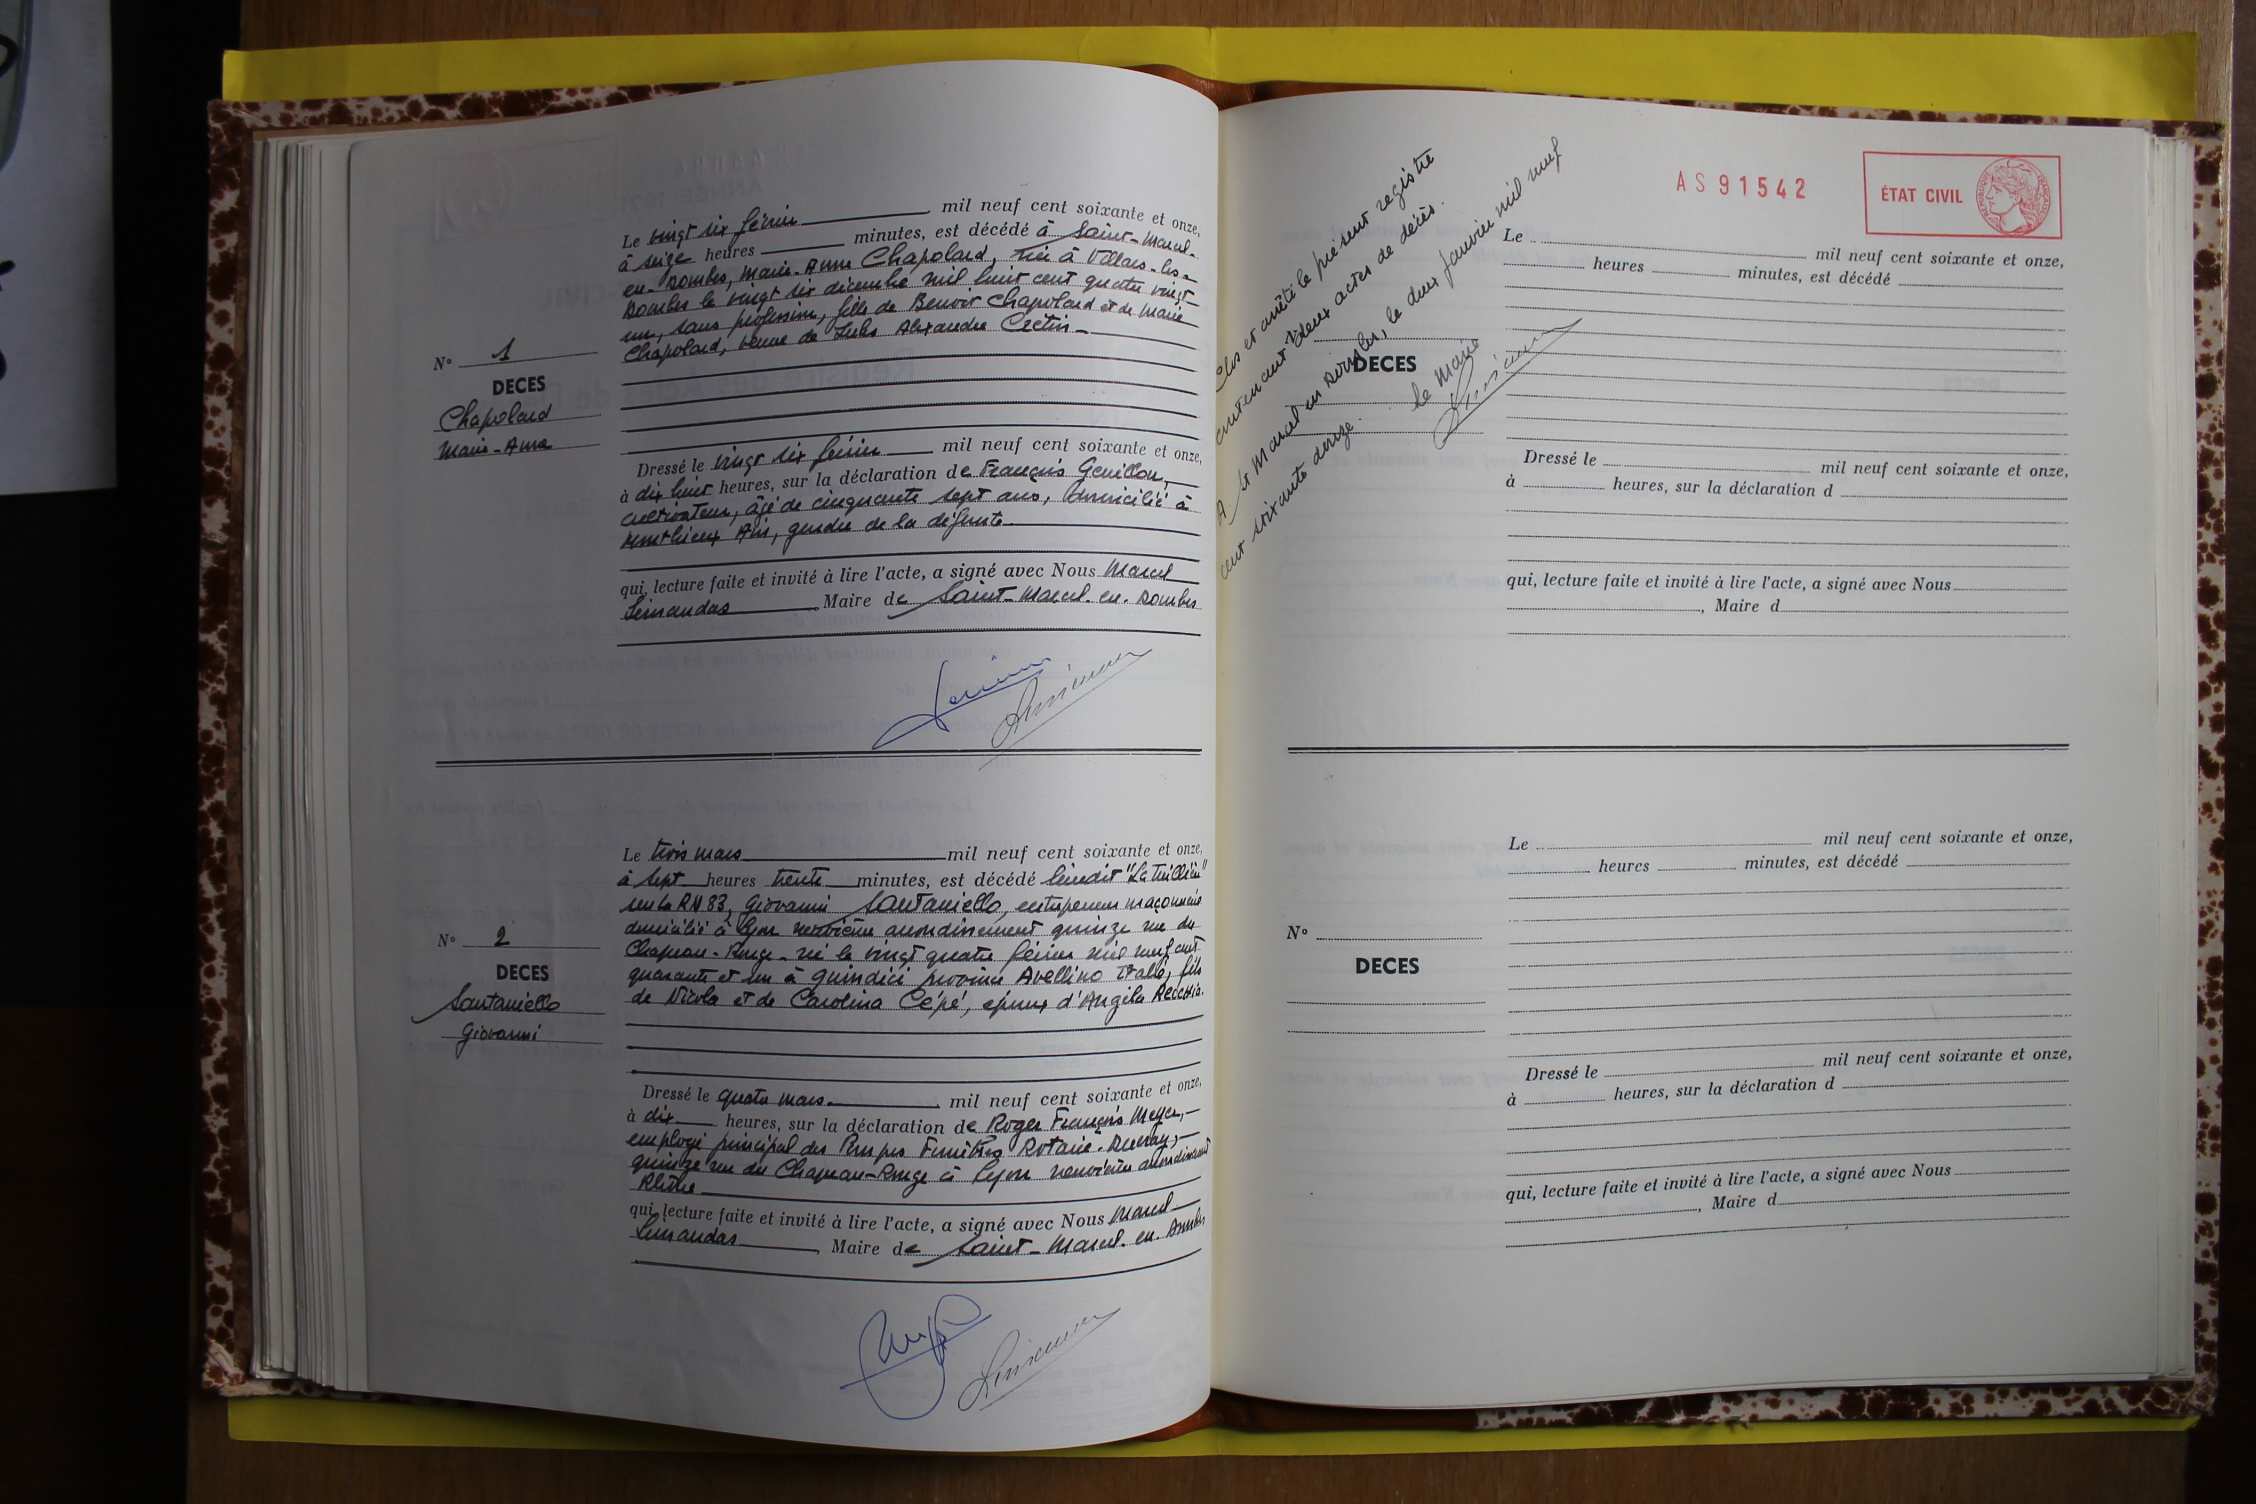 N° 1
DECES
Chapolard
Marie-Anna
Le vingt six février mil neuf cent soixante et onze,
à seize heures minutes, est décédé à Saint-Marcel-
en-Dombes, Marie-Anna Chapolard, née à Villars-les-
Dombes le vingt six décembre mil huit cent quatre vingt
un, sans profession, fille de Benoit Chapolard et de Marie
Chapolard, veuve de Jules Alexandre Cectin
Dressé le vingt six février mil neuf cent soixante et onze,
à dix huit heures, sur la déclaration de François Genillon,
cultivateur, âgé de cinquante sept ans, domicilié à
Monthieux Ain, gendre de la défunte
qui, lecture faite et invité à lire l'acte, a signé avec Nous Marcel
Limandas Maire de Saint-Marcel-en-Dombes
N° 2
DECES
Santaniello
Giovanni
Le trois mars mil neuf cent soixante et onze,
à sept heures trente minutes, est décédé lieudit "La Tuillière"
sur la RN 83, Giovanni Santaniello, entrepreneur maçonnerie
domicilié à Lyon neuvième arrondissement quinze rue du
Chapeau-Rouge né le vingt quatre février mil neuf cent
quarante et un à Quindici province Avellino Italie, fils
de Nicola et de Carolina Cépé, époux d'Angela
Dressé le quatre mars mil neuf cent soixante et onze,
à dix heures, sur la déclaration de Roger François Meyer,
employé principal des Pompes Funèbres
quinze rue du Chapeau-Rouge à Lyon neuvième arrondissement
Rhône
qui, lecture faite et invité à lire l'acte, a signé avec Nous Marcel
Limandas, Maire de Saint-Marcel-en-Dombes
Clos et arrêté le présent registre
contenant deux actes de décès.
A St Marcel en Dombes, le deux janvier mil neuf
cent soixante douze. Le Maire
AS 91542
ÉTAT CIVIL
DECES
Le mil neuf cent soixante et onze,
heures minutes, est décédé
Dressé le mil neuf cent soixante et onze,
à heures, sur la déclaration d
qui, lecture faite et invité à lire l'acte, a signé avec Nous
, Maire d
N°
DECES
Le mil neuf cent soixante et onze,
heures minutes, est décédé
Dressé le mil neuf cent soixante et onze,
à heures, sur la déclaration d
qui, lecture faite et invité à lire l'acte, a signé avec Nous
, Maire d